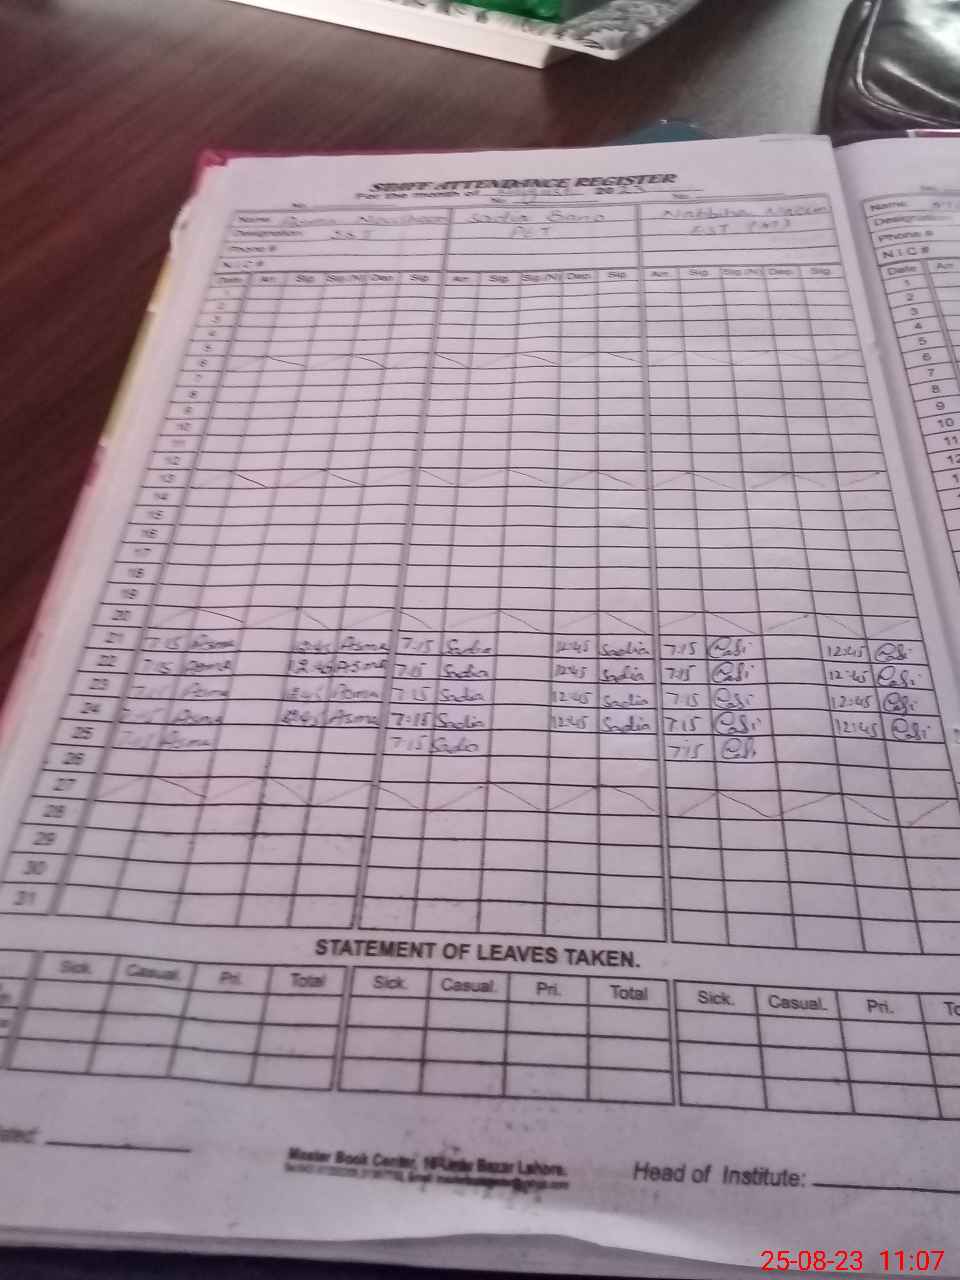 STAFF ATTENDANCE REGISTER
For the month of August 2023
No. No. No.
Name Sadia Bano
Designation SST PET EST
Phone #
N.I.C #
Date Arr. Sig. Sig.(N) Dep. Sig. Arr. Sig. Sig.(N) Dep. Sig. Arr. Sig. Sig.(N) Dep. Sig.
1
2
3
4
5
6
7
8
9
10
11
12
13
14
15
16
17
18
19
20
21 7:15 Asma 12:45 Asma 7:15 Sadia 12:45 Sadia 7:15 12:45
22 7:15 Asma 12:45 Asma 7:15 Sadia 12:45 Sadia 7:15 12:45
23 7:15 Asma 12:45 Asma 7:15 Sadia 12:45 Sadia 7:15 12:45
24 7:15 Asma 12:45 Asma 7:15 Sadia 12:45 Sadia 7:15 12:45
25 7:15 Asma 7:15 Sadia 7:15
26
27
28
29
30
31
STATEMENT OF LEAVES TAKEN.
Sick. Casual. Pri. Total Sick. Casual. Pri. Total Sick. Casual. Pri.
Master Book Center, Urdu Bazar Lahore.
Head of Institute:
Name
Designation
Phone #
N.I.C #
Date Arr.
1
2
3
4
5
6
7
8
9
10
11
25-08-23 11:07